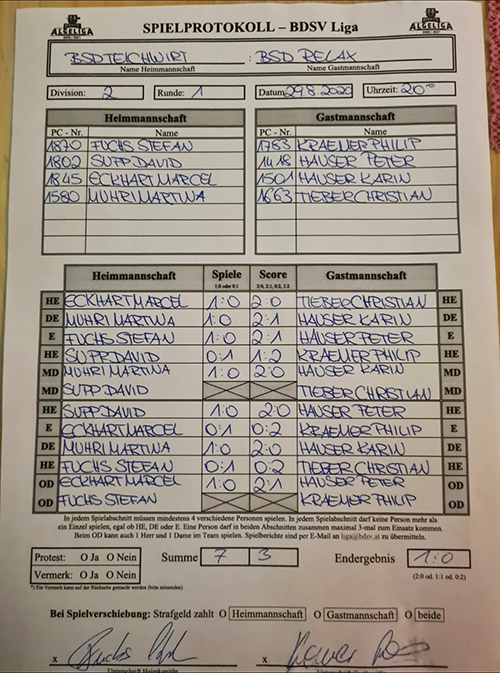 ALGELIGA SPIELPROTOKOLL – BDSV Liga ALGELIGA
2020 / 2021 2020 / 2021
BSD TEICHWIRT : BSD RELAX
Name Heimmannschaft Name Gastmannschaft
Division: 2 Runde: 1 Datum 29.8.2020 Uhrzeit: 20°°
Heimmannschaft Gastmannschaft
PC - Nr. Name PC - Nr. Name
1870 FUCHS STEFAN 1783 KRAEMER PHILIP
1802 SUPP DAVID 1418 HAUSER PETER
1845 ECKHART MARCEL 1501 HAUSER KARIN
1580 MUHRI MARTINA 1663 TIEBER CHRISTIAN
Heimmannschaft Spiele Score Gastmannschaft
1:0 oder 0:1 2:0, 2:1, 0:2, 1:2
HE ECKHART MARCEL 1:0 2:0 TIEBER CHRISTIAN HE
DE MUHRI MARTINA 1:0 2:1 HAUSER KARIN DE
E FUCHS STEFAN 1:0 2:1 HAUSER PETER E
HE SUPP DAVID 0:1 1:2 KRAEMER PHILIP HE
MD MUHRI MARTINA 1:0 2:0 HAUSER KARIN MD
MD SUPP DAVID TIEBER CHRISTIAN MD
HE SUPP DAVID 1:0 2:0 HAUSER PETER HE
E ECKHART MARCEL 0:1 0:2 KRAEMER PHILIP E
DE MUHRI MARTINA 1:0 2:0 HAUSER KARIN DE
HE FUCHS STEFAN 0:1 0:2 TIEBER CHRISTIAN HE
OD ECKHART MARCEL 1:0 2:1 HAUSER PETER OD
OD FUCHS STEFAN KRAEMER PHILIP OD
In jedem Spielabschnitt müssen mindestens 4 verschiedene Personen spielen. In jedem Spielabschnitt darf keine Person mehr als
ein Einzel spielen, egal ob HE, DE oder E. Eine Person darf in beiden Abschnitten zusammen maximal 3-mal zum Einsatz kommen.
Beim OD kann auch 1 Herr und 1 Dame im Team spielen. Spielberichte sind per E-Mail an liga@bdsv.at zu übermitteln.
Protest: O Ja O Nein Summe 7 3 Endergebnis 1:0
Vermerk: O Ja O Nein (2:0 od. 1:1 od. 0:2)
*) Ein Vermerk kann auf der Rückseite gemacht werden (bitte mitsenden)
Bei Spielverschiebung: Strafgeld zahlt O Heimmannschaft O Gastmannschaft O beide
x x
Unterschrift Heimkapitän Unterschrift Gastkapitän